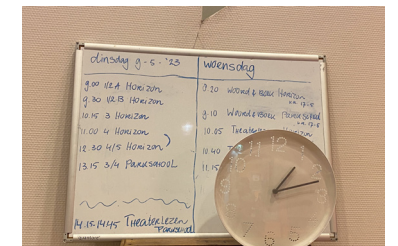 dinsdag 9-5-'23
9.00 1/2A Horizon
9.30 1/2B Horizon
10.15 3 Horizon
11.00 4 Horizon
12.30 4/5 Horizon
13.15 3/4 Parkschool
14.15-14.45 Theaterlezen
Parkschool
woensdag
Woord & Beeld Horizon
v.a. 17-5
Woord & Beeld
v.a. 17-5
10.05 Horizon
10.40
11.15
11 12 1
2
7 6 5